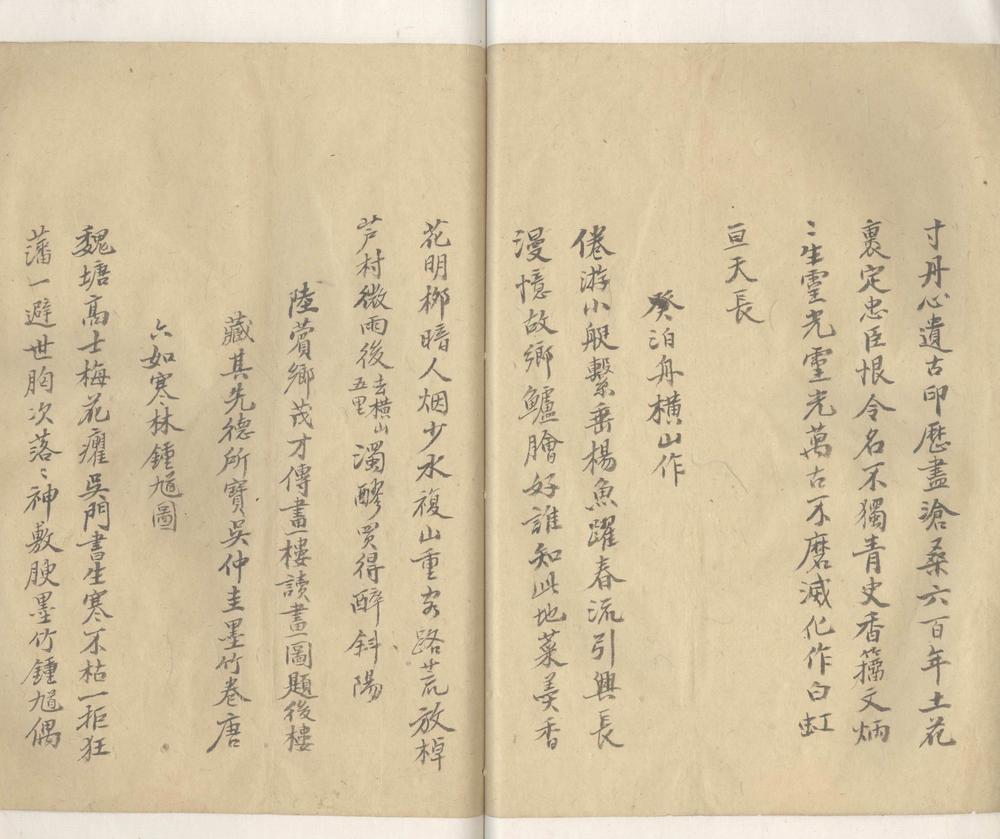 寸丹心遺古印歷盡滄桑六百年土花
裏定忠臣恨令名不獨青史香籀文炳
〻生靈光靈光萬古不磨滅化作白虹
亘天長
癸泊舟橫山作
倦游小艇繫垂楊魚躍春流引興長
漫憶故鄉鱸膾好誰知此地菜羹香
花明柳暗人烟少水複山重客路荒放棹
芦村微雨後去橫山五里濁醪買得醉斜陽
陸賞鄉茂才傳畫樓讀畫圖題後樓
藏其先德所寶吳仲圭墨竹卷唐
六如寒林鍾馗圖
魏塘高士梅花癯吳門書生寒不枯一拒狂
藩一避世胸次落〻神敷腴墨竹鍾馗偶